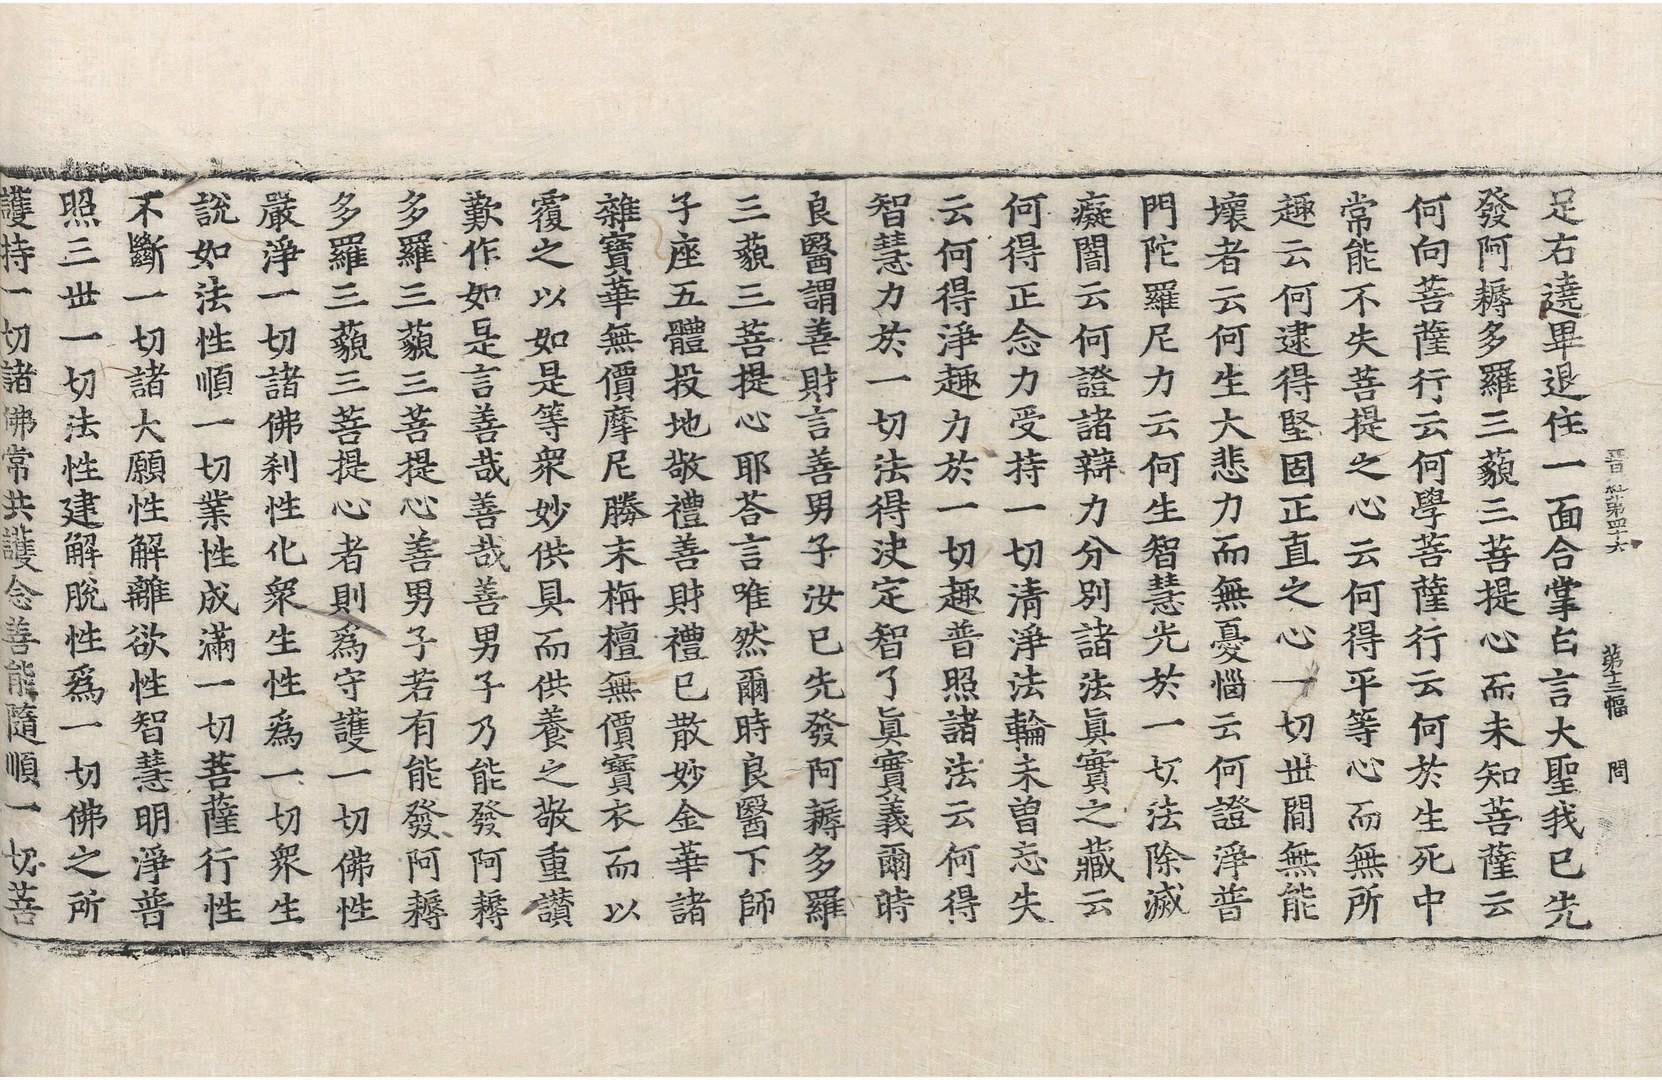 晋経第四十六 第十三幅 問
足右遶畢退住一面合掌白言大聖我已先
發阿耨多羅三藐三菩提心而未知菩薩云
何向菩薩行云何學菩薩行云何於生死中
常能不失菩提之心云何得平等心而無所
趣云何逮得堅固正直之心一切世間無能
壞者云何生大悲力而無憂惱云何證淨普
門陀羅尼力云何生智慧光於一切法除滅
癡闇云何證諸辯力分別諸法眞實之藏云
何得正念力受持一切清淨法輪未曾忘失
云何得淨趣力於一切趣普照諸法云何得
智慧力於一切法得決定智了眞實義爾時
良醫謂善財言善男子汝已先發阿耨多羅
三藐三菩提心耶荅言唯然爾時良醫下師
子座五體投地敬禮善財禮已散妙金華諸
雜寶華無價摩尼勝末栴檀無價寶衣而以
覆之以如是等衆妙供具而供養之敬重讃
歎作如是言善哉善哉善男子乃能發阿耨
多羅三藐三菩提心善男子若有能發阿耨
多羅三藐三菩提心者則爲守護一切佛性
嚴淨一切諸佛刹性化衆生性爲一切衆生
說如法性順一切業性成滿一切菩薩行性
不斷一切諸大願性解離欲性智慧明淨普
照三世一切法性建解脫性爲一切佛之所
護持一切諸佛常共護念善能隨順一切菩